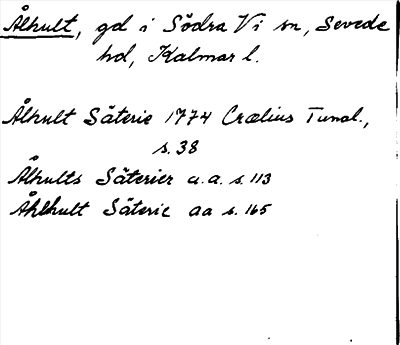 Ålhult, gd i Södra Vi sn, Sevede
hd, Kalmar l.
Ålhult Säterie 1774 Crælius Tunal.,
s. 38
Ålhults Säterier a.a. s. 113
Åhlhult Säterie aa s. 165